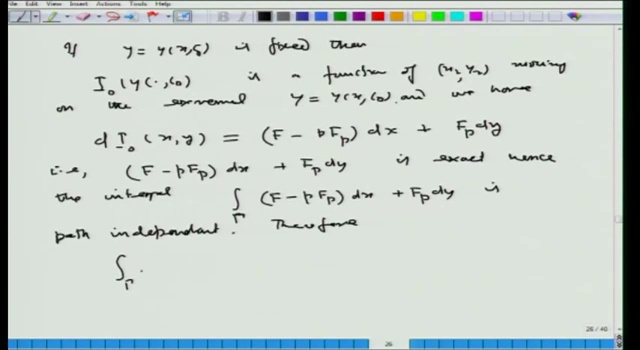 File Edit View Insert Actions Tools Help
If y = y(x, c₀) is fixed then
I₀(y(·, c₀) is a function of (x₂, y₂) moving
on the extremal y = y(x, c₀) and we have
d I₀(x, y) = (F - pF_p) dx + F_p dy
i.e, (F - pF_p) dx + F_p dy is exact hence
the integral ∫_Γ (F - pF_p) dx + F_p dy is
path independant. Therefore
∫_Γ
26 / 40
26